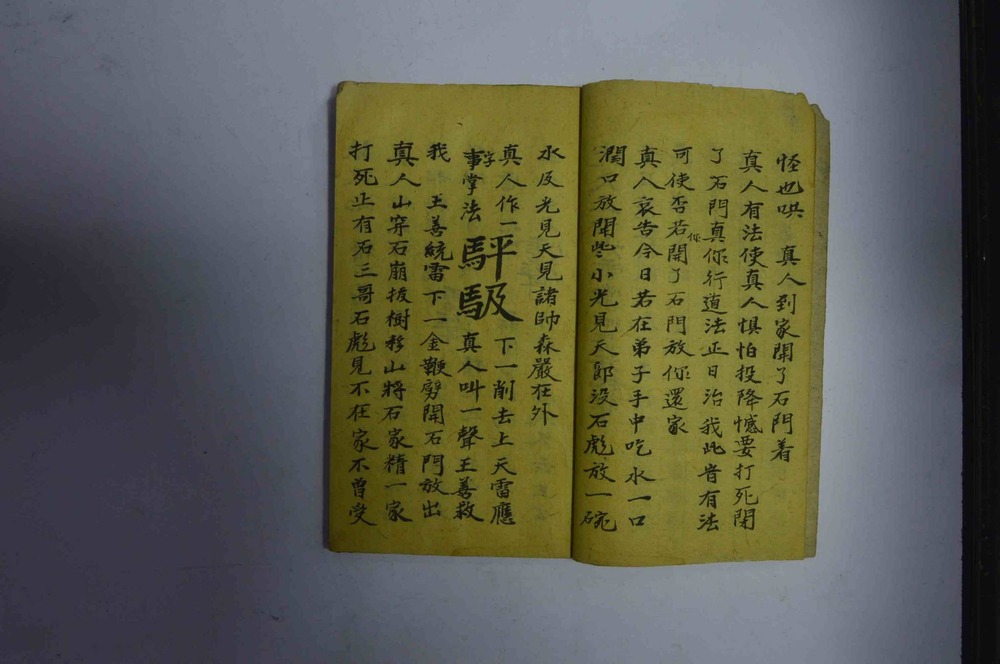 怪也哄 真人到家閉了石門着
真人有法使真人惧怕投降憾要打死閉
了石門真你行道法正日治我此昔有法
可使否若開了石門放你還家
你
真人哀告今日若在弟子手中吃水一口
潤口放開些小光見天郎没石彪放一碗
水反光見天見諸帥森嚴在外
真人作一字 下一削去上天雷應
事掌法 駍馺 真人叫一聲王善救
我 王善統雷下一金鞭劈開石門放出
真人山穿石崩拔樹移山將石家精一家
打死止有石三哥石彪見不在家不曾受